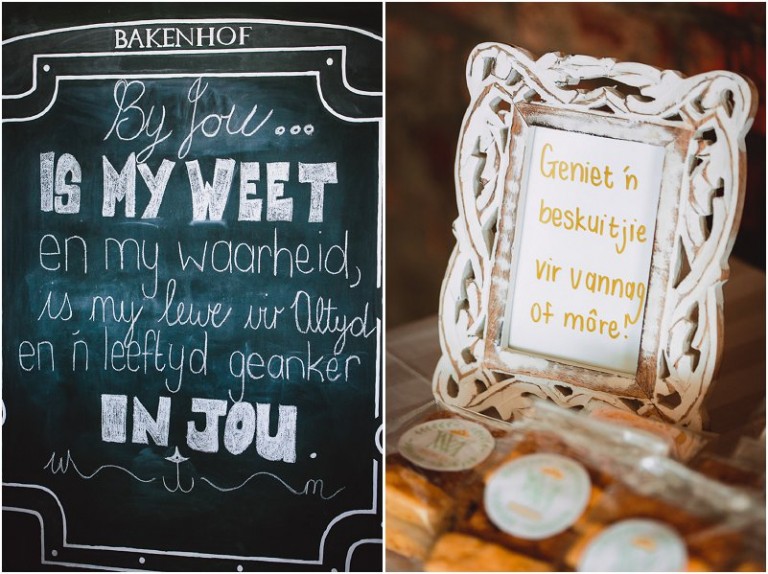 BAKENHOF
By Jou...
IS MY WEET
en my waarheid,
is my lewe vir Altyd
en 'n leeftyd geanker
IN JOU.
W m
Geniet 'n
beskuitjie
vir vannag
of môre!